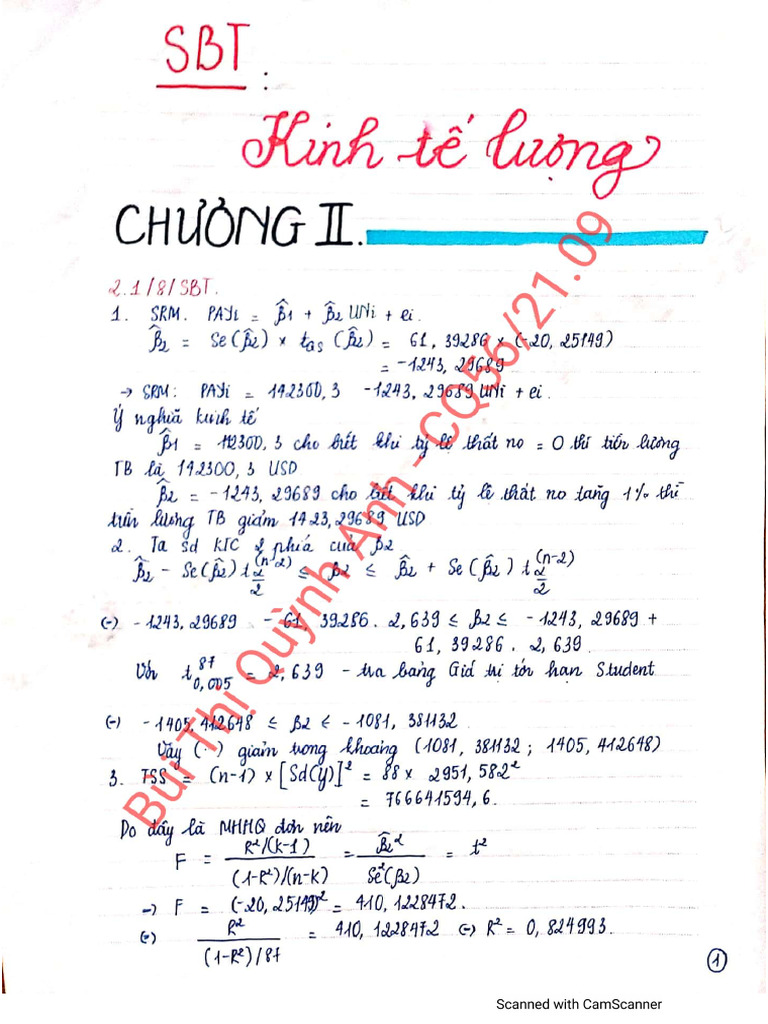 SBT :
Kinh tế lượng
CHƯƠNG II.
2.1/8/SBT.
1. SRM. PAYi = β̂1 + β̂2 UNi + ei.
β̂2 = Se(β̂2) × tqs (β̂2) = 61,39286 × (-20,25149)
= -1243,29689
→ SRM: PAYi = 142300,3 -1243,29689 UNi + ei.
Ý nghĩa kinh tế
β̂1 = 142300,3 cho biết khi tỷ lệ thất no = 0 thì tiền lương
TB là 142300,3 USD
β̂2 = -1243,29689 cho biết khi tỷ lê thất no tăng 1% thì
tiền lương TB giảm 1423,29689 USD
2. Ta sd KTC 2 phía của β2
β̂2 - Se(β̂2) t α/2 (n-2) ≤ β2 ≤ β̂2 + Se(β̂2) t α/2 (n-2)
(=) -1243,29689 - 61,39286 . 2,639 ≤ β2 ≤ -1243,29689 +
61,39286 . 2,639
Với t 87 0,005 = 2,639 - tra bảng Giá trị tới hạn Student
(=) -1405,412648 ≤ β2 ≤ -1081,381132
Vậy (..) giảm trong khoảng (1081,381132 ; 1405,412648)
3. TSS = (n-1) × [Sd(Y)]² = 88 × 2951,582²
= 766641594,6.
Do đây là MHHQ đơn nên
F = R²/(k-1) / (1-R²)/(n-k) = β̂2² / Se²(β̂2) = t²
→ F = (-20,25149)² = 410,1228472.
(=) R² / (1-R²)/87 = 410,1228472 (=) R² = 0,824993.
1
Bùi Thị Quỳnh Anh - CQ56/21.09
Scanned with CamScanner